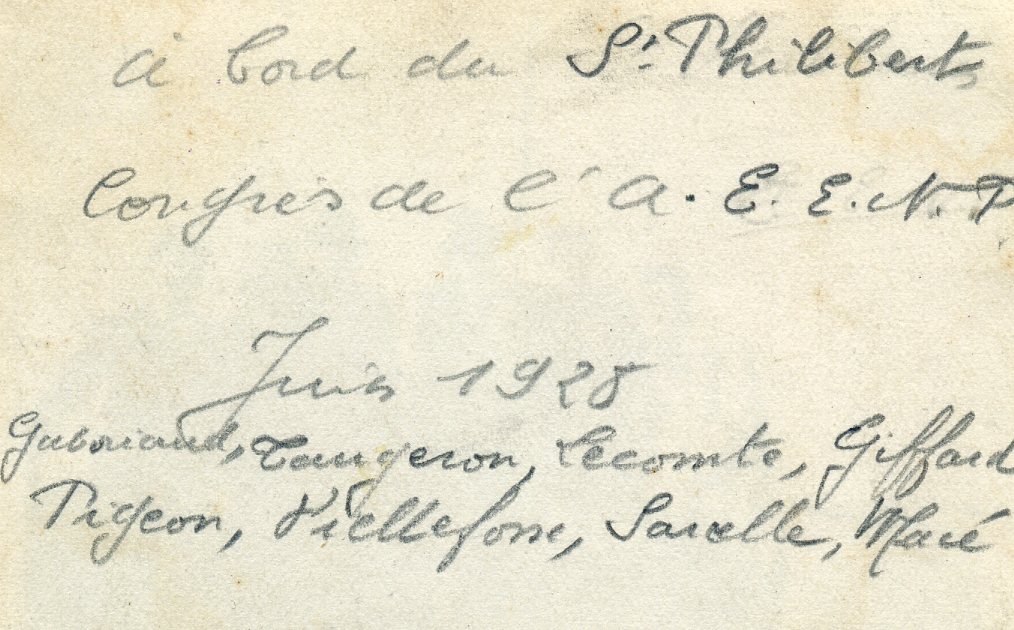 à bord du St Philibert,
Congrès de l'A. E. E. N. P.
Juin 1928
Gaboriaud, Tangeron, Lecomte, Giffard
Pigeon, Viellefosse, Sarcelle, Macé